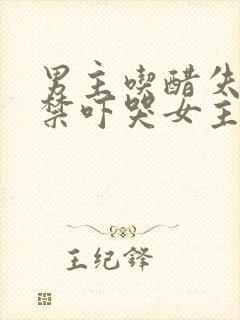 男主喫醋失
禁吓哭女主
王纪锋